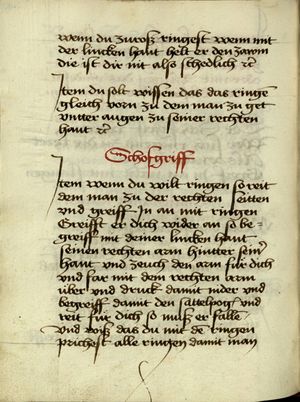 wenn du zu roß ringest wenn mit
der lincken hant helt er den zawm
die ist dir nit also schedlich ꝛc
Item du solt wissen das das ringen
gleich vorn zu dem man zu get
vnter augen zu seiner rechten
hant ꝛc
Schofgriff
Item wenn du wilt ringen so reit
dem man zu der rechten seitten
vnd greiff in an mit ringen
Greifft er dich wider an so be-
greiff mit deiner lincken hant
seinen rechten arm hintter seiner
hant vnd zeuch den arm für dich
vnd far mit dem rechten arm
über vnd druck damit nider vnd
begreiff damit den sattelpog vnd
reit für dich so muß er falle
Vnd wiß das du mit de ringen
prichest alle ringen damit man